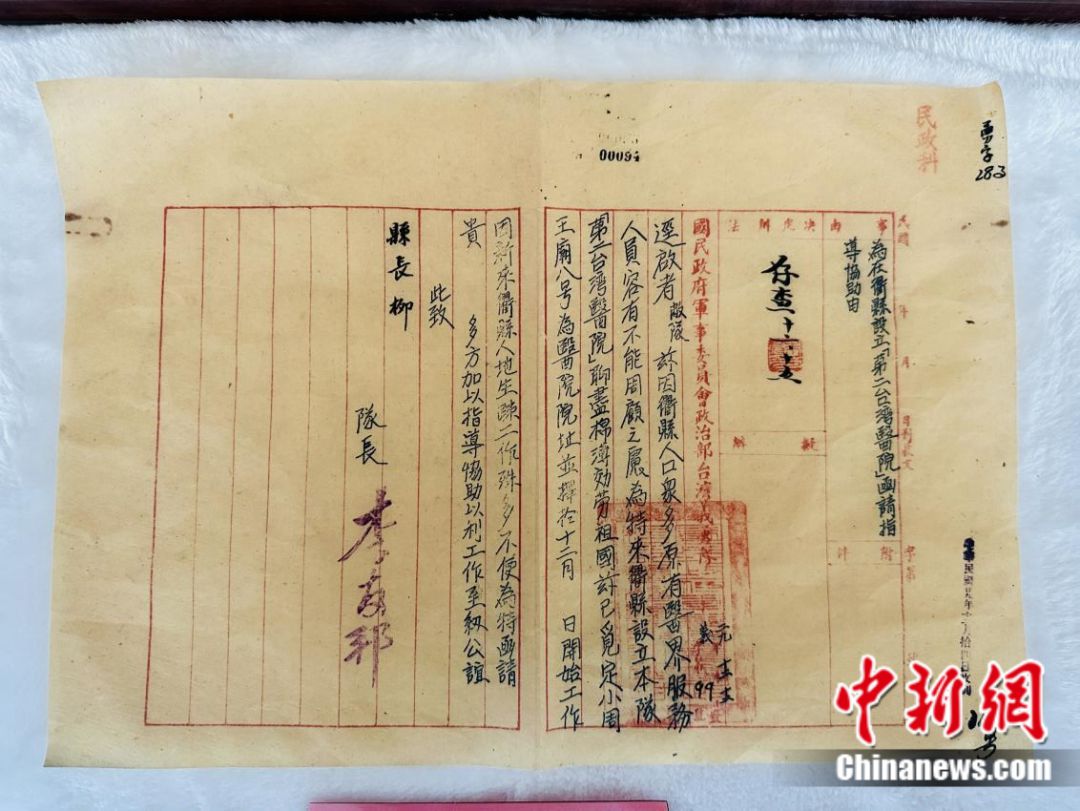 00094
民政科
283
民國 年 月 日
事由
為在衢縣設立「第二台灣醫院」函請指
導協助由
附件
擬辦
決定辦法
存查 十二、十五
國民政府軍事委員會政治部台灣義勇隊
逕啟者敝隊茲因衢縣人口衆多原有醫界服務
人員容有不能周顧之處為特來衢縣設立本隊
「第二台灣醫院」聊盡棉薄効劳祖國茲已覓定小周
王廟八号為醫院院址並擇於十二月 日開始工作
因新來衢縣人地生疎工作殊多不便為特函請
貴 多方加以指導協助以利工作至紉公誼
此致
縣長柳
隊長 李友邦
中新網
Chinanews.com